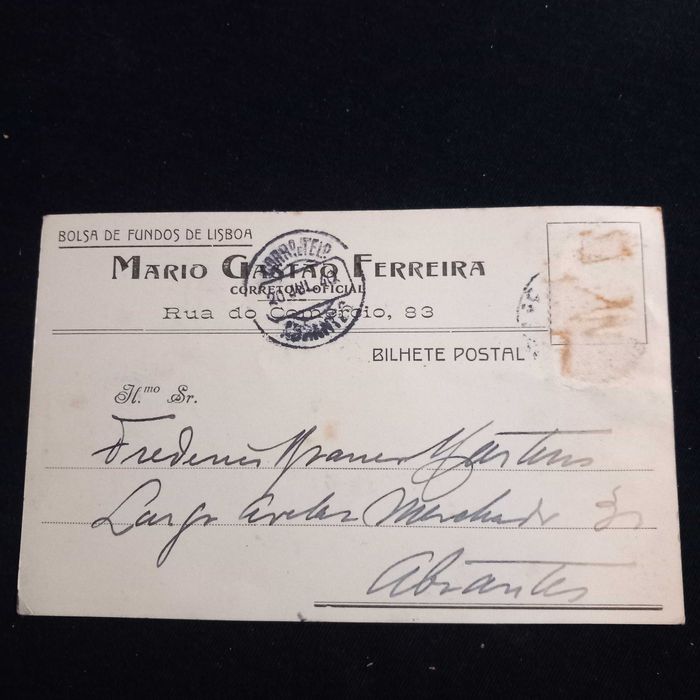 BOLSA DE FUNDOS DE LISBOA
MARIO GASTÃO FERREIRA
CORRETOR OFICIAL
Rua do Comércio, 83
CORR. E TELEG.
ABRANTES
BILHETE POSTAL
Il.mo Sr.
Martins
Largo Avelar Machado
Abrantes